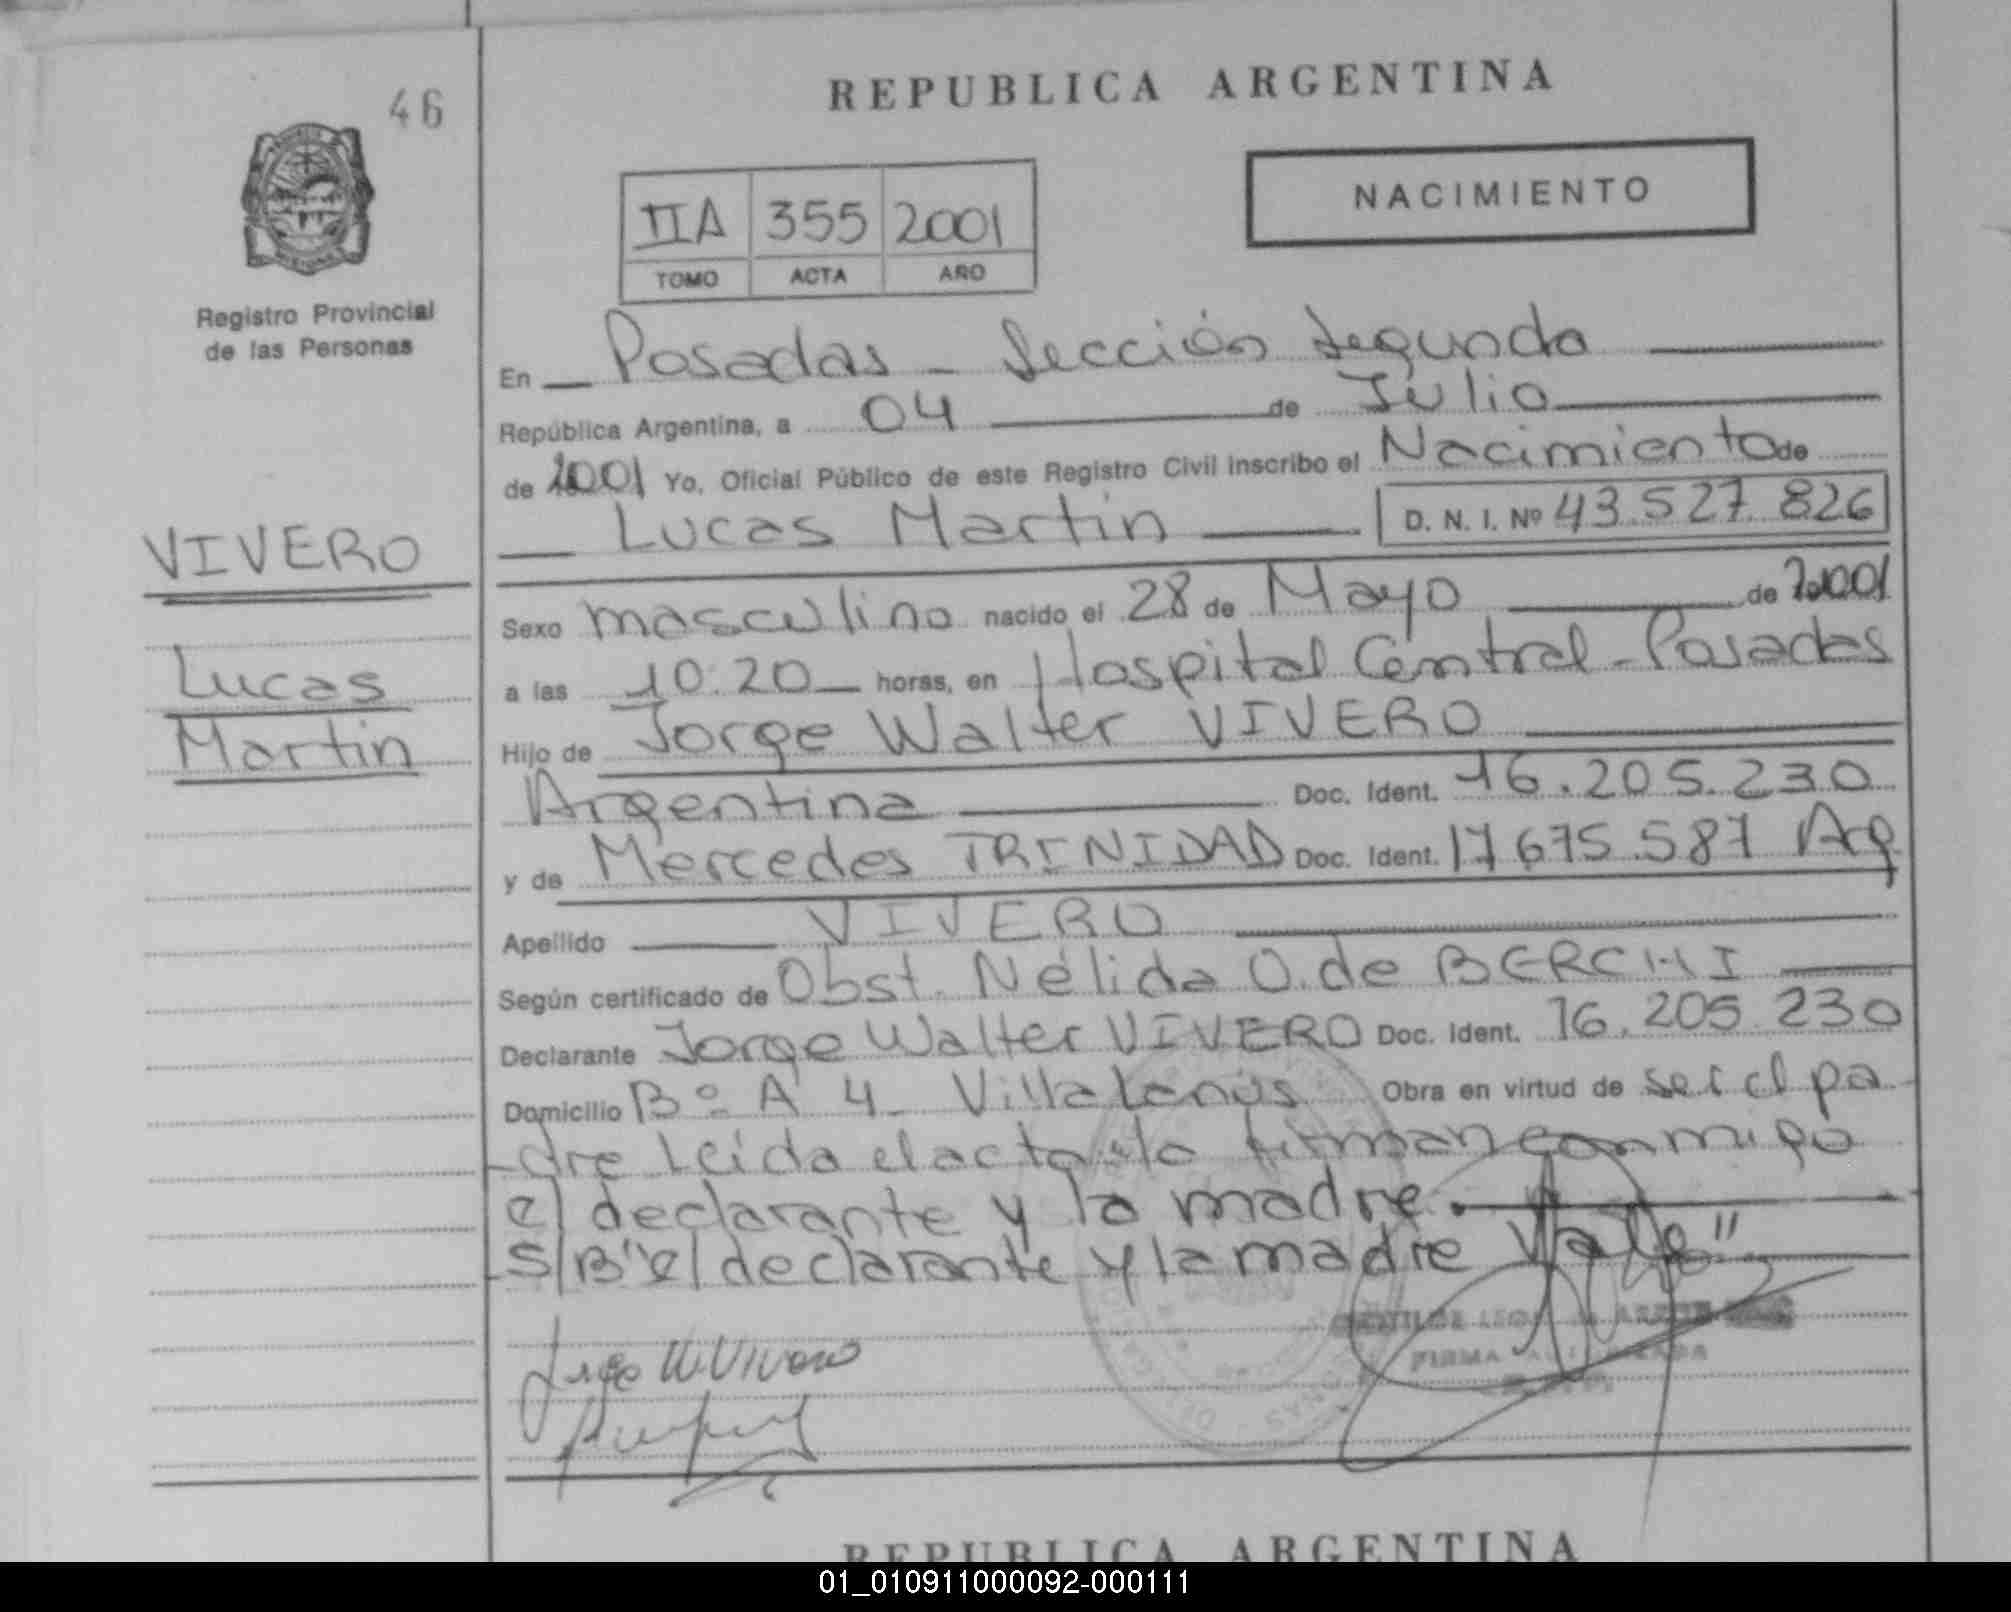 46
REPUBLICA ARGENTINA
NACIMIENTO
IIA 355 2001
TOMO ACTA AÑO
Registro Provincial
de las Personas
En Posadas - Sección Segunda
República Argentina, a 04 de Julio
de 2001 Yo, Oficial Público de este Registro Civil inscribo el Nacimiento de
Lucas Martin D. N. I. Nº 43.527.826
VIVERO
Lucas
Martin
Sexo masculino nacido el 28 de Mayo de 2001
a las 10:20 horas, en Hospital Central - Posadas
Hijo de Jorge Walter VIVERO
Argentina Doc. Ident. 16.205.230
y de Mercedes TRINIDAD Doc. Ident. 17.675.587 Arg
Apellido VIVERO
Según certificado de Obst. Nélida O. de BERCHI
Declarante Jorge Walter VIVERO Doc. Ident. 16.205.230
Domicilio Bº A 4 - Villa Lanús Obra en virtud de ser el pa
dre Leida el acta la firman conmigo
el declarante y la madre.
S/B "el declarante y la madre Vale"
Jorge W. Vivero
FIRMA AUTORIZADA
REPUBLICA ARGENTINA
01_010911000092-000111